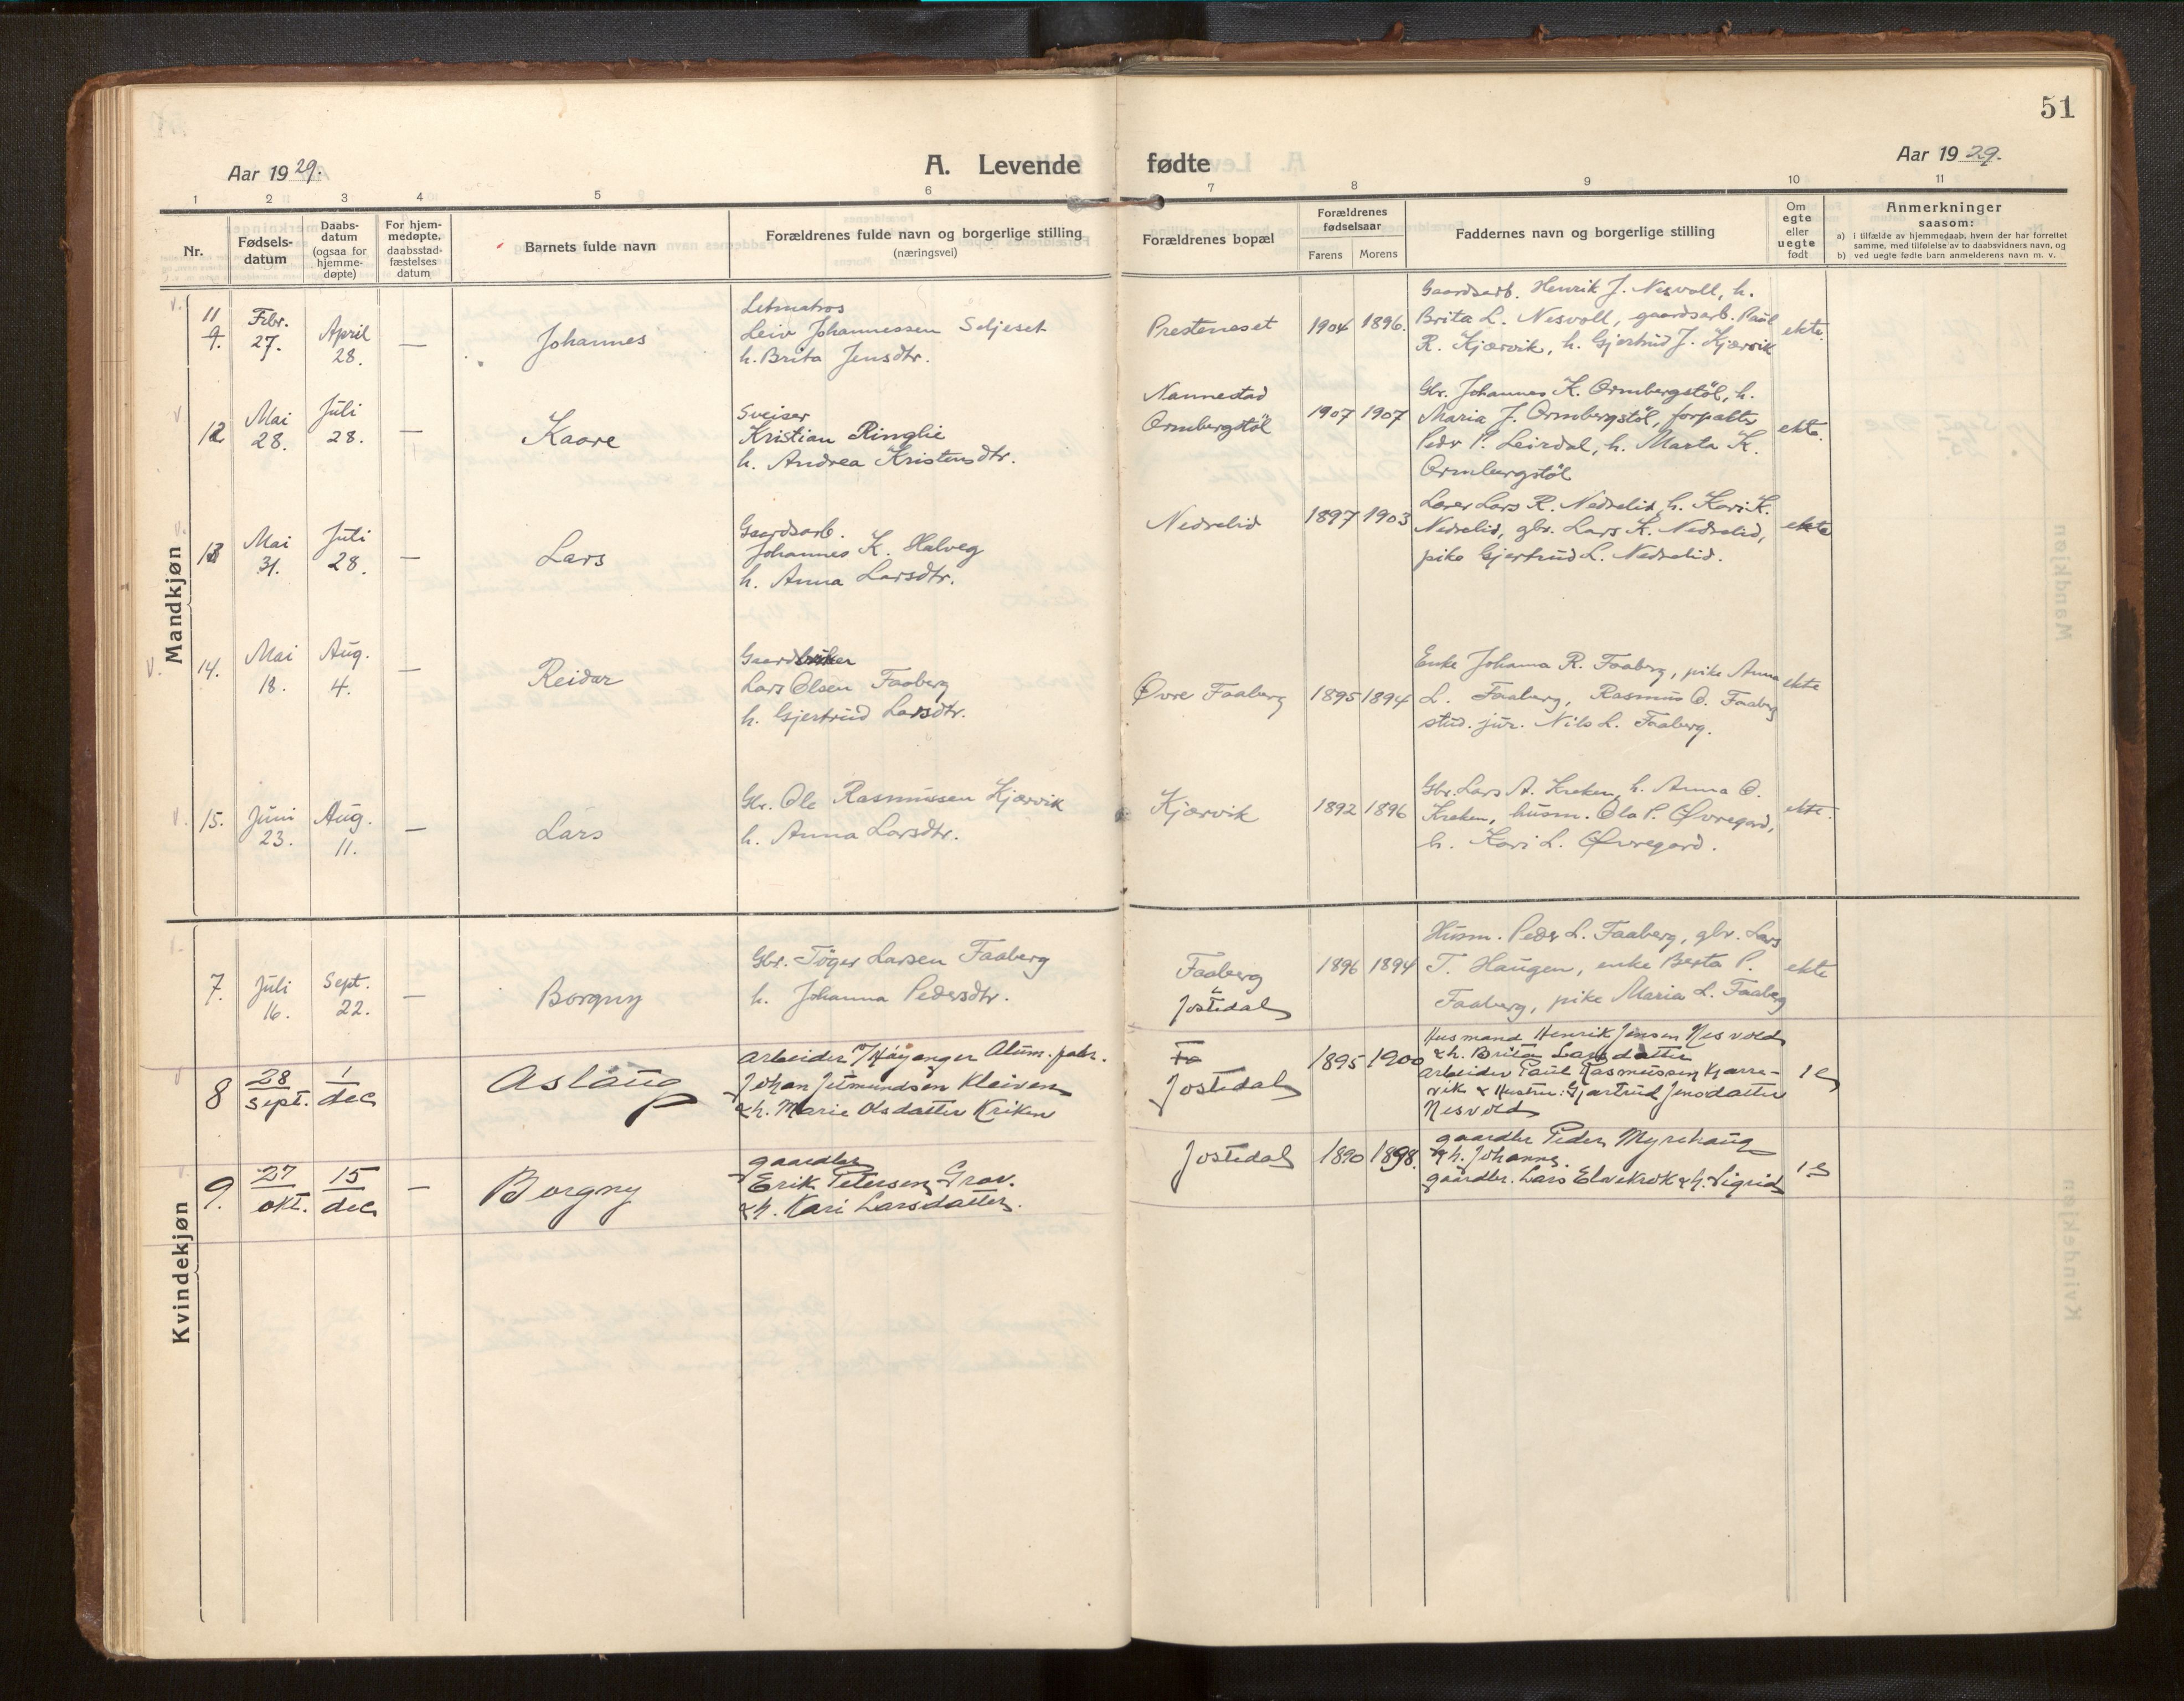 51
Aar 1929.
A. Levende fødte
Aar 1929.
1 2 3 4 5 6 7 8 9 10 11
Nr.
Fødsels-
datum
Daabs-
datum
(ogsaa for
hjemme-
døpte)
For hjem-
medøpte,
daabsstad-
fæstelses
datum
Barnets fulde navn
Forældrenes fulde navn og borgerlige stilling
(næringsvei)
Forældrenes bopæl
Forældrenes
fødselsaar
Farens Morens
Faddernes navn og borgerlige stilling
Om
egte
eller
uegte
født
Anmerkninger
saasom:
a) i tilfælde av hjemmedaab, hvem der har forrettet
samme, med tilføielse av to daabsvidners navn, og
b) ved uegte fødte barn anmelderens navn m. v.
Mandkjøn
11
Febr.
27.
April
28.
—
Johannes
Letmatros
Leiv Johannessen Seljeset
h. Brita Jensdtr.
Presteneset
1904 1896.
Gaardsarb. Henrik J. Nesvoll, h.
Brita L. Nesvoll, gaardsarb. Paul
R. Kjærvik, h. Gjertrud J. Kjærvik
ekte.
12
Mai
28.
Juli
28.
—
Kaare
Sveiser
Kristian Ringlie
h. Andrea Kristensdtr.
Nannestad
Ormbergstöl
1907 1907
Gbr. Johannes K. Ormbergstöl, h.
Maria J. Ormbergstöl, forpakter
Peder P. Leirdal, h. Marta K.
Ormbergstöl
ekte.
13
Mai
31.
Juli
28.
—
Lars
Gaardsarb.
Johannes K. Halveg
h. Anna Larsdtr.
Nedrelid
1897 1903
Lærer Lars R. Nedrelid, h. Kari K.
Nedrelid, gbr. Lars K. Nedrelid,
pike Gjertrud L. Nedrelid.
ekte
14.
Mai
18.
Aug.
4.
—
Reidar
Lars Olsen Faaberg
h. Gjertrud Larsdtr.
Øvre Faaberg
1895 1894
Enke Johanna R. Faaberg, pike Anna
L. Faaberg, Rasmus O. Faaberg
stud. jur. Nils L. Faaberg.
ekte
15.
Juni
23.
Aug.
11.
—
Lars
Gbr. Ole Rasmussen Kjærvik
h. Anna Larsdtr.
Kjærvik
1892 1896
Gbr. Lars A. Kreken, h. Anna O.
Kreken, husm. Ola P. Øvregard,
h. Kari L. Øvregard.
ekte.
Kvindekjøn
7.
Juli
16.
Sept.
22.
—
Borgny
Gbr. Töger Larsen Faaberg
h. Johanna Pedersdtr.
Faaberg
Jostedal
1896 1894
Husm. Peder L. Faaberg, gbr. Lars
T. Haugen, enke Berta P.
Faaberg, pike Maria L. Faaberg
ekte
8
28
sept.
1
dec
Aslaug
arbeider v/Høyanger Alum. fabr.
Johan Jetmundsen Kleiven
& h. Marie Olsdatter Kriken
Fa
Jostedal
1895 1900
Husmand Henrik Jensen Nesvold
& h. Brita Larsdatter
arbeider Paul Rasmussen Kjærre-
vik & Hustru: Gjertrud Jensdatter
Nesvold
1 e
9.
27
okt.
15
dec
—
Borgny
gaardbr
Erik Petersen Grov.
& h. Kari Larsdatter.
Jostedal
1890 1898.
gaardbr Peder Myrehaug
& h. Johanne.
gaardbr. Lars Elvekrok & h. Sigrid
1 e